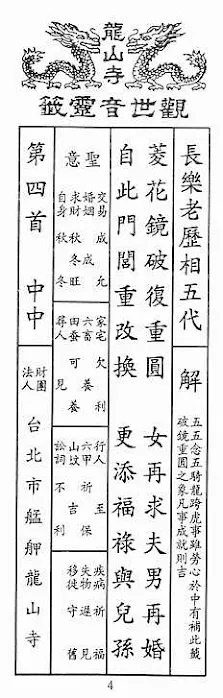 龍山寺
觀世音靈籤
長樂老歷相五代
解
五五念五騎龍跨虎事雖勞心於中有補此籤
破鏡重圓之象凡事成就則吉
菱花鏡破復重圓 女再求夫男再婚
自此門閭重改換 更添福祿與兒孫
聖意
交易 成
婚姻 允
求財 秋冬成
自身 秋冬旺
家宅 欠利
六畜 養
田蚕 可養
尋人 見
行人
六甲 祈保
山墳 吉
訟詞 不利
疾病 祈福
失物 遲見
移徙 守舊
第四首 中中
財團法人 台北市艋舺龍山寺
4